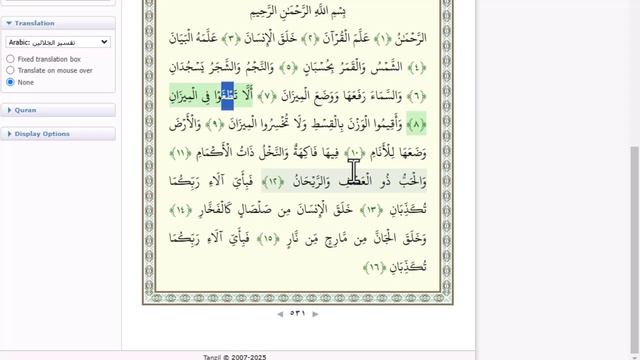 Translation
Arabic: تفسير الجلالين
Fixed translation box
Translate on mouse over
None
Quran
Display Options
بِسْمِ اللَّهِ الرَّحْمَٰنِ الرَّحِيمِ
الرَّحْمَٰنُ ﴿١﴾ عَلَّمَ الْقُرْآنَ ﴿٢﴾ خَلَقَ الْإِنسَانَ ﴿٣﴾ عَلَّمَهُ الْبَيَانَ
﴿٤﴾ الشَّمْسُ وَالْقَمَرُ بِحُسْبَانٍ ﴿٥﴾ وَالنَّجْمُ وَالشَّجَرُ يَسْجُدَانِ
﴿٦﴾ وَالسَّمَاءَ رَفَعَهَا وَوَضَعَ الْمِيزَانَ ﴿٧﴾ أَلَّا تَطْغَوْا فِي الْمِيزَانِ
﴿٨﴾ وَأَقِيمُوا الْوَزْنَ بِالْقِسْطِ وَلَا تُخْسِرُوا الْمِيزَانَ ﴿٩﴾ وَالْأَرْضَ
وَضَعَهَا لِلْأَنَامِ ﴿١٠﴾ فِيهَا فَاكِهَةٌ وَالنَّخْلُ ذَاتُ الْأَكْمَامِ ﴿١١﴾
وَالْحَبُّ ذُو الْعَصْفِ وَالرَّيْحَانُ ﴿١٢﴾ فَبِأَيِّ آلَاءِ رَبِّكُمَا
تُكَذِّبَانِ ﴿١٣﴾ خَلَقَ الْإِنسَانَ مِن صَلْصَالٍ كَالْفَخَّارِ ﴿١٤﴾
وَخَلَقَ الْجَانَّ مِن مَّارِجٍ مِّن نَّارٍ ﴿١٥﴾ فَبِأَيِّ آلَاءِ رَبِّكُمَا
تُكَذِّبَانِ ﴿١٦﴾
٥٣١
Tanzil © 2007-2025